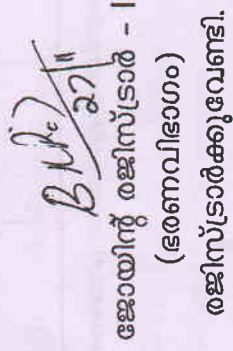 27/11
ജോയിന്റ് രജിസ്ട്രാർ - I
(ഭരണവിഭാഗം)
രജിസ്ട്രാർക്കുവേണ്ടി.